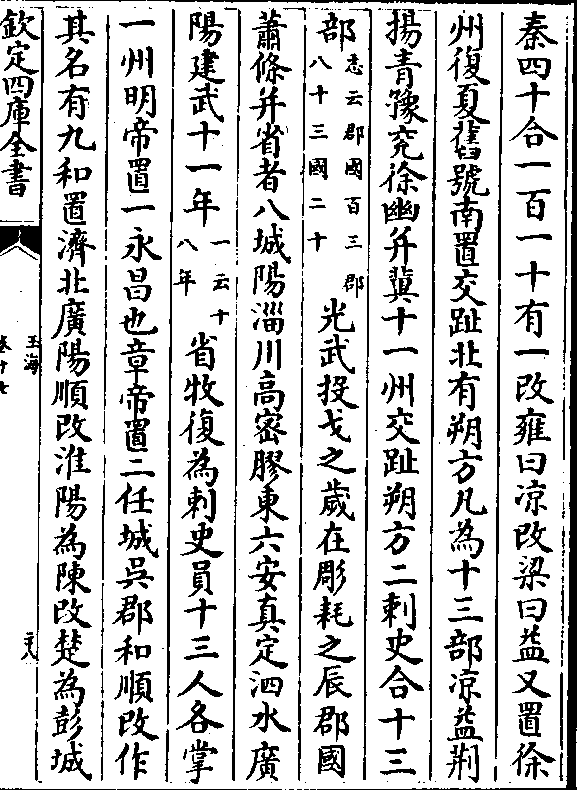 秦四十合一百一十有一改雍曰凉改梁曰益又置徐
州復夏舊號南置交趾北有朔方凡為十三部凉益荆
揚青豫兖徐幽并冀十一州交趾朔方二刺史合十三
部志云郡國百三郡八十三國二十光武投戈之歲在彫耗之辰郡國
蕭條并省者八城陽淄川高密膠東六安真定泗水廣
陽建武十一年一云十八年省牧復為刺史員十三人各掌
一州明帝置一永昌也章帝置二任城吳郡和順改作
其名有九和置濟北廣陽順改淮陽為陳改楚為彭城
欽定四庫全書
玉海
卷十七